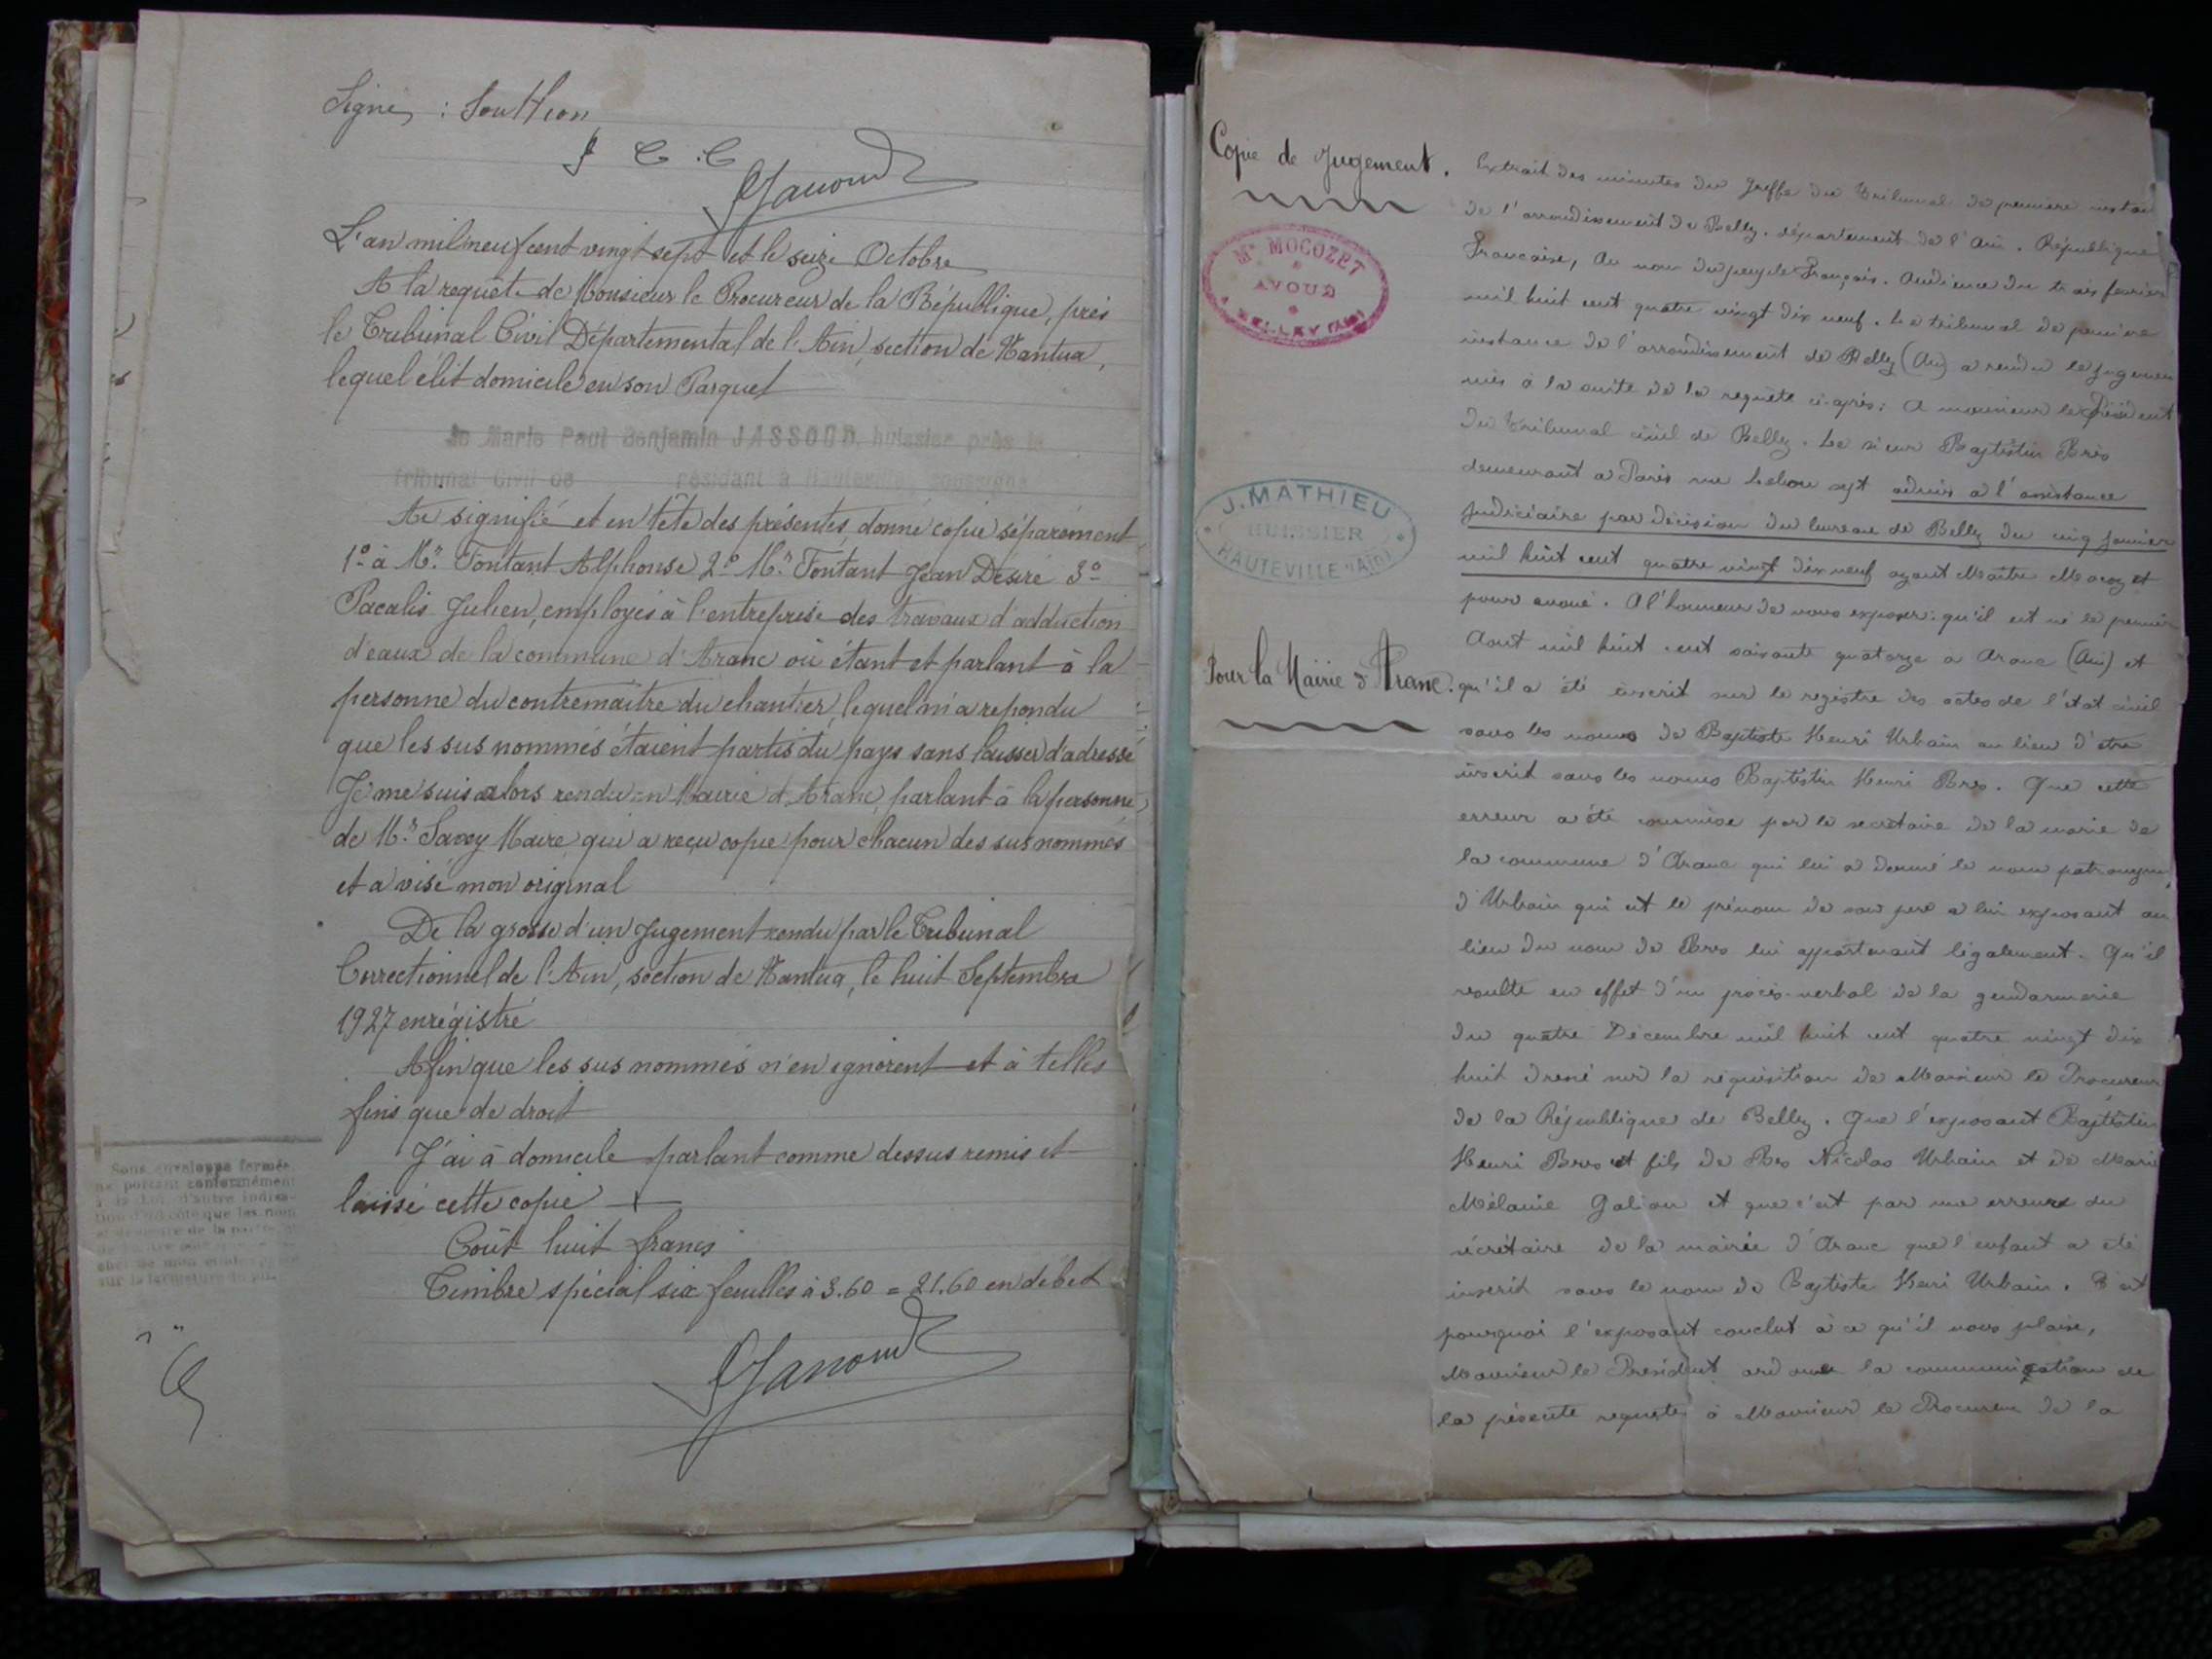 Signé : Soulthon
P C . C
Jassoud
L'an mil neuf cent vingt sept et le seize Octobre
A la requête de Monsieur le Procureur de la République, près
le Tribunal Civil Départemental de l'Ain, section de Nantua,
lequel élit domicile en son Parquet
Je Marie Paul Benjamin JASSOUD, huissier près le
Tribunal Civil de résidant à Hauteville, soussigné
Ai signifié et en tête des présentes, donné copie séparément
1° à Mr. Fontant Alphonse 2° Mr. Fontant Jean Desiré 3°
Pacalis Julien, employés à l'entreprise des travaux d'adduction
d'eaux de la commune d'Aranc où étant et parlant à la
personne du contremaitre du chantier, lequel m'a repondu
que les sus nommés étaient partis du pays sans laisser d'adresse
Je me suis alors rendu en Mairie d'Aranc, parlant à la personne
de Mr. Savey Maire qui a reçu copie pour chacun des sus nommés
et a visé mon original
De la grosse d'un Jugement rendu par le Tribunal
Correctionnel de l'Ain, section de Nantua, le huit Septembre
1927 enrégistré
Afin que les sus nommés n'en ignorent et à telles
fins que de droit
J'ai à domicile parlant comme dessus remis et
laissé cette copie
Coût huit francs
Timbre spécial six feuilles à 3.60 = 21.60 en débet
Jassoud
Sous enveloppe fermée
ne portant conformément
à la loi, d'autre indica-
tion d'un côté que les nom
et demeure de la partie, et
de l'autre
sur la fermeture du pli.
Copie de Jugement.
Me MOCOZET
AVOUÉ
BELLEY (AIN)
J. MATHIEU
HUISSIER
HAUTEVILLE (AIN)
Pour la Mairie d'Aranc.
Extrait des minutes du Greffe du Tribunal de première instan
de l'arrondissement de Belley. département de l'Ain. République
Française, Au nom du peuple Français. Audience du trois fevrier
mil huit cent quatre vingt dix neuf. Le tribunal de première
instance de l'arrondissement de Belley (Ain) a rendu le jugemen
mis à la suite de la requête ci-après: A monsieur le Président
du Tribunal civil de Belley. Le sieur Baptistin Brès
demeurant a Paris rue Lebon sept admis a l'assistance
Judiciaire par décision du bureau de Belley du cinq janvier
mil huit cent quatre vingt dix neuf ayant Maitre Mocozet
pour avoué. A l'honneur de vous exposer: qu'il est né le premier
Aout mil huit cent soixante quatorze a Aranc (Ain) et
qu'il a été inscrit sur le registre des actes de l'état civil
sous les noms de Baptiste Henri Urbain au lieu d'etre
inscrit sous les noms Baptistin Henri Bres. Que cette
erreur a été commise par le secretaire de la marie de
la commune d'Aranc qui lui a donné le nom patronym
d'Urbain qui est le prénom de son pere a lui exposant au
lieu du nom de Bres lui appartenant légalement. Qu'il
resulte en effet d'un procès-verbal de la gendarmerie
du quatre Décembre mil huit cent quatre vingt dix
huit dressé sur la réquisition de Monsieur le Procureur
de la République de Belley. Que l'exposant Baptistin
Henri Bres est fils de Bres Nicolas Urbain et de Marie
Mélanie Galian et que c'est par une erreure du
sécrétaire de la mairie d'Aranc que l'enfant a été
inscrit sous le nom de Baptiste Henri Urbain. C'est
pourquoi l'exposant conclut à ce qu'il vous plaise,
Monsieur le President ordonner la communication de
la présente requete à Monsieur le Procureur de la